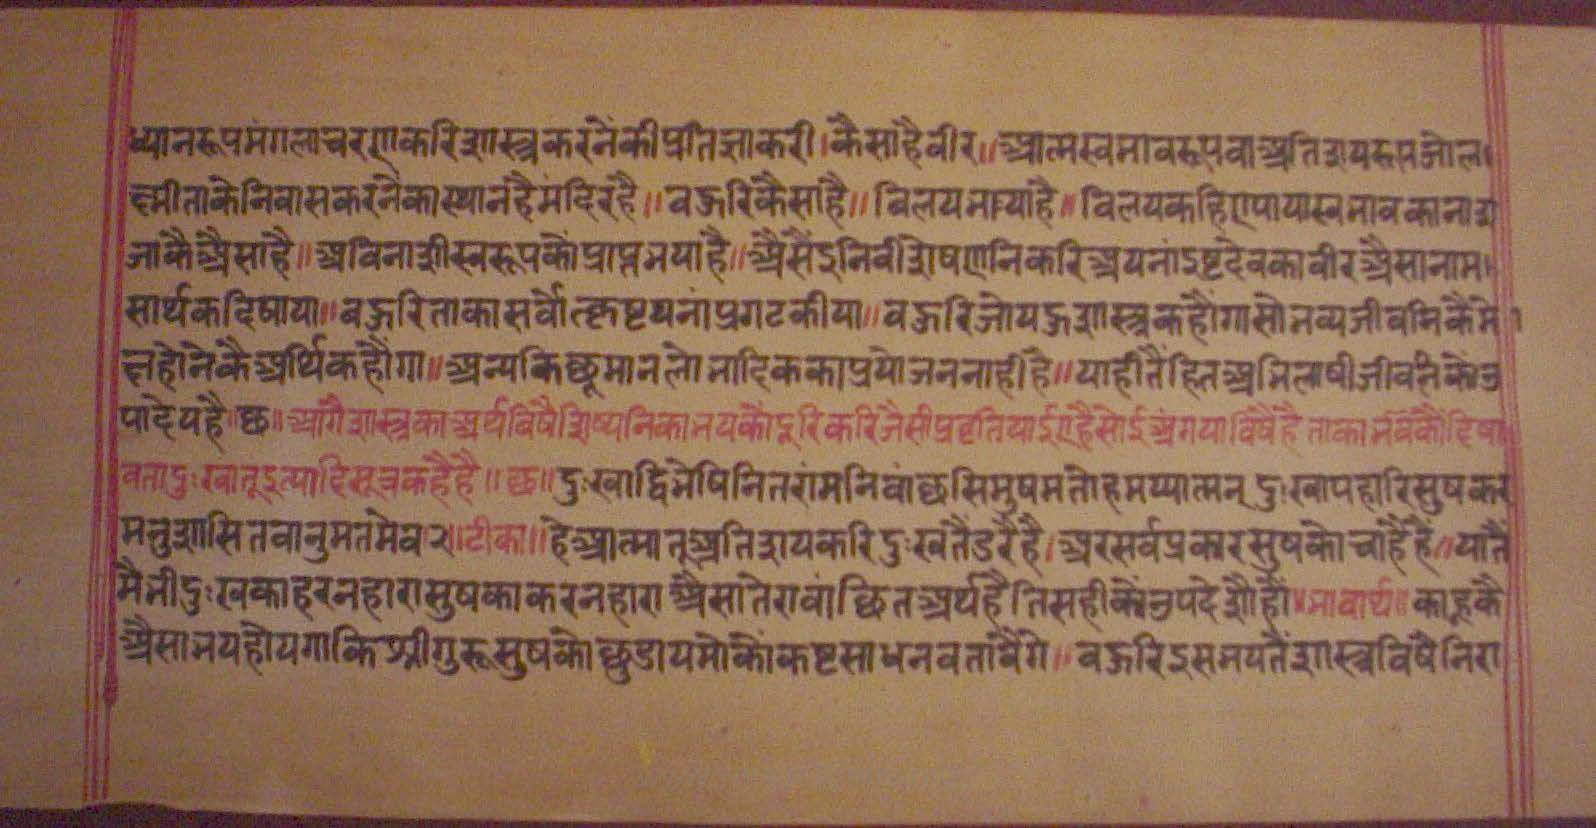 ध्यानरूपमंगलाचरणकरिशास्त्रकरनेंकीप्रतिज्ञाकरी।कैसाहैवीर॥आत्मस्वभावरूपवाअतिशयरूपजोल
क्ष्मीताकेनिवासकरनेकास्थानहैमंदिरहै॥बऊरिकैसाहै॥विलयभयाहै॥विलयकहिएपापास्वभावकानाश
जाकैअैसाहै॥अविनाशीस्वरूपकौंप्राप्तभयाहै॥अैसैंइनिविशेषणनिकरिअपनांइष्टदेवकावीरअैसानाम।
सार्थकदिषाया॥बऊरिताकासर्वोत्कृष्टपनांप्रगटकीया॥बऊरिजोयऊशास्त्रकहौंगासोभव्यजीवनिकैमो
क्षहोनेकैअर्थिकहौंगा॥अन्यकिछूमानलोभादिककाप्रयोजननाहींहै॥याहीतैंहितअभिलाषीजीवनिकोंउ
पादेयहै॥छ॥आगैशास्त्रकाअर्थविषैशिष्यनिकाभयकौंदूरिकरिजैसीप्रवृतिपाईएहैसोईअंगयाविषैंहैताकाभयकौंदिषा
वतादुःखातूइत्यादिसूत्रकहैहै॥छ॥दुःखाद्विभेषिनितरांमभिवांछसिसुषमतोहमप्यात्मन्दुःखापहारिसुषकर
मनुशासितवानुमतमेव२॥टीका॥हेआत्मातूअतिशयकरिदुःखतैंडरैहै।अरसर्वप्रकारसुषकोचाहैहै॥यातैं
मैभीदुःखकाहरनहारासुषकाकरनहाराअैसातेरावांछितअर्थहैतिसहीकोंउपदेशौंहौं॥भावार्थ॥काहूकै
अैसाभयहोयगाकिश्रीगुरूसुषकोछुडायमोकोंकष्टसाधनवतावैंगे॥बऊरिइसभयतैंशास्त्रविषैनिरा